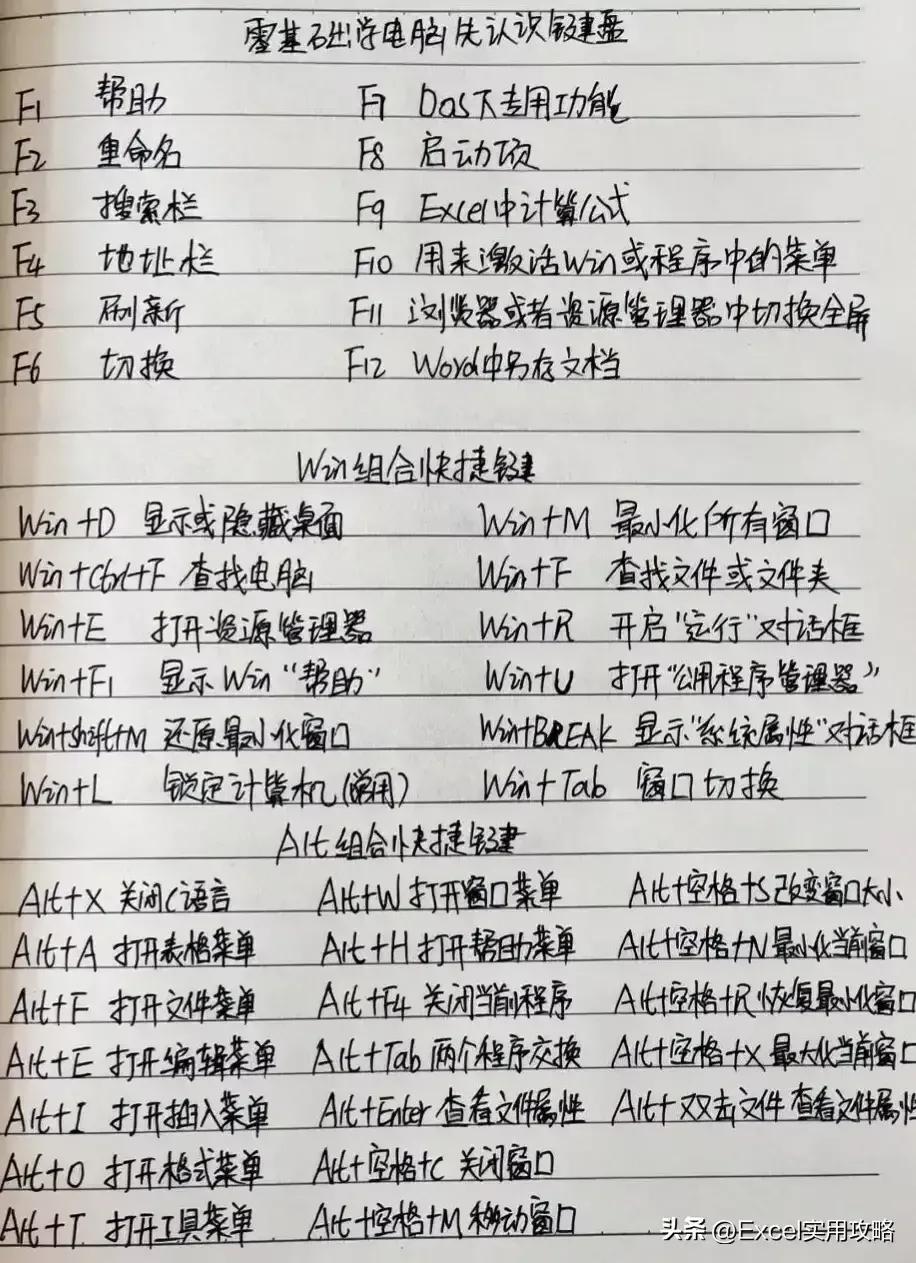 零基础学电脑先认识键盘
F1 帮助 F7 Dos下专用功能
F2 重命名 F8 启动项
F3 搜索栏 F9 Excel中计算公式
F4 地址栏 F10 用来激活Win或程序中的菜单
F5 刷新 F11 浏览器或者资源管理器中切换全屏
F6 切换 F12 Word中另存文档
Win组合快捷键
Win+D 显示或隐藏桌面 Win+M 最小化所有窗口
Win+Ctrl+F 查找电脑 Win+F 查找文件或文件夹
Win+E 打开资源管理器 Win+R 开启“运行”对话框
Win+F1 显示Win“帮助” Win+U 打开“公用程序管理器”
Win+shift+M 还原最小化窗口 Win+BREAK 显示“系统属性”对话框
Win+L 锁定计算机(常用) Win+Tab 窗口切换
Alt组合快捷键
Alt+X 关闭C语言 Alt+W 打开窗口菜单 Alt+空格+S 改变窗口大小
Alt+A 打开表格菜单 Alt+H 打开帮助菜单 Alt+空格+N 最小化当前窗口
Alt+F 打开文件菜单 Alt+F4 关闭当前程序 Alt+空格+R 恢复最小化窗口
Alt+E 打开编辑菜单 Alt+Tab 两个程序交换 Alt+空格+X 最大化当前窗口
Alt+I 打开插入菜单 Alt+Enter 查看文件属性 Alt+双击文件 查看文件属性
Alt+O 打开格式菜单 Alt+空格+C 关闭窗口
Alt+T 打开工具菜单 Alt+空格+M 移动窗口
头条 @Excel实用攻略